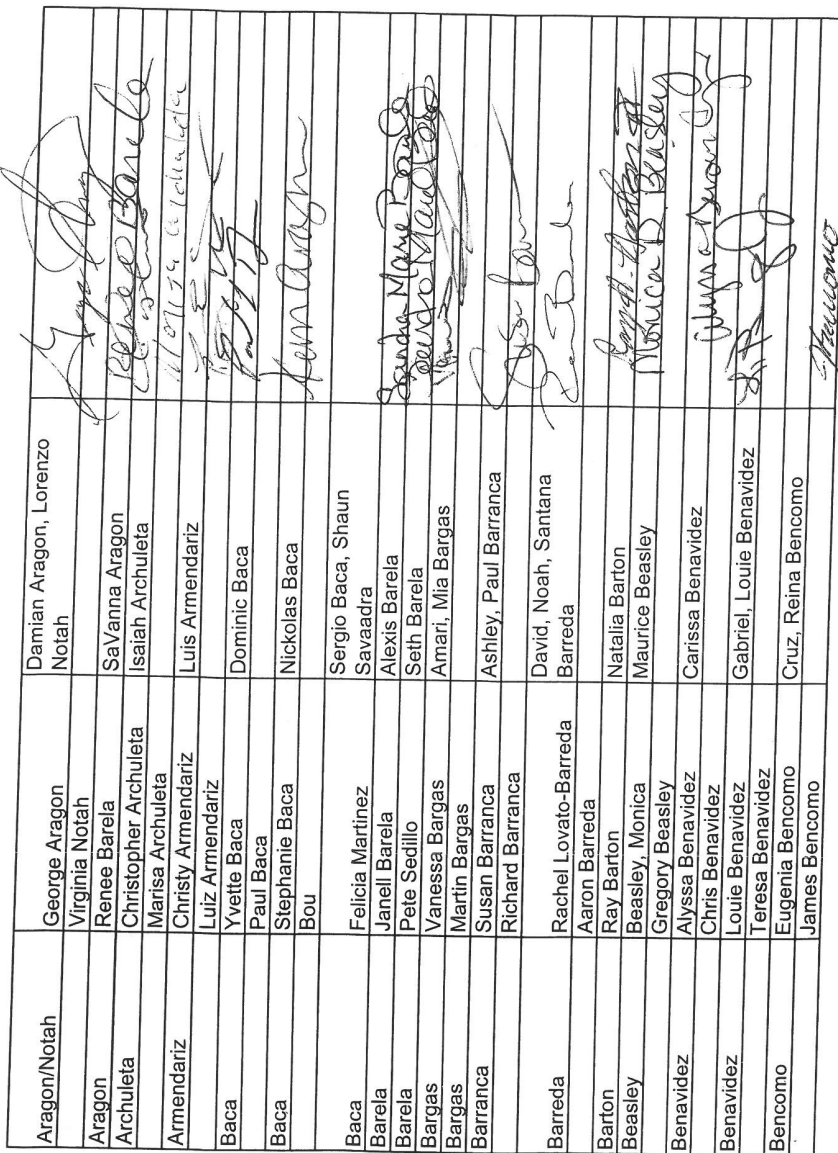 Aragon/Notah George Aragon Damian Aragon, Lorenzo
Notah
Virginia Notah
Aragon Renee Barela SaVanna Aragon Renee Barela
Archuleta Christopher Archuleta Isaiah Archuleta
Marisa Archuleta Marisa Archuleta
Armendariz Christy Armendariz Luis Armendariz
Luiz Armendariz
Baca Yvette Baca Dominic Baca
Paul Baca
Baca Stephanie Baca Nickolas Baca
Bou
Sergio Baca, Shaun
Baca Felicia Martinez Savaadra
Barela Janell Barela Alexis Barela Sandra Marie Barela
Barela Pete Sedillo Seth Barela
Bargas Vanessa Bargas Amari, Mia Bargas
Bargas Martin Bargas
Barranca Susan Barranca Ashley, Paul Barranca
Richard Barranca
David, Noah, Santana
Barreda Rachel Lovato-Barreda Barreda
Aaron Barreda
Barton Ray Barton Natalia Barton
Beasley Beasley, Monica Maurice Beasley Monica D. Beasley
Gregory Beasley
Benavidez Alyssa Benavidez Carissa Benavidez Alyssa Benavidez
Chris Benavidez
Benavidez Louie Benavidez Gabriel, Louie Benavidez
Teresa Benavidez
Bencomo Eugenia Bencomo Cruz, Reina Bencomo
James Bencomo